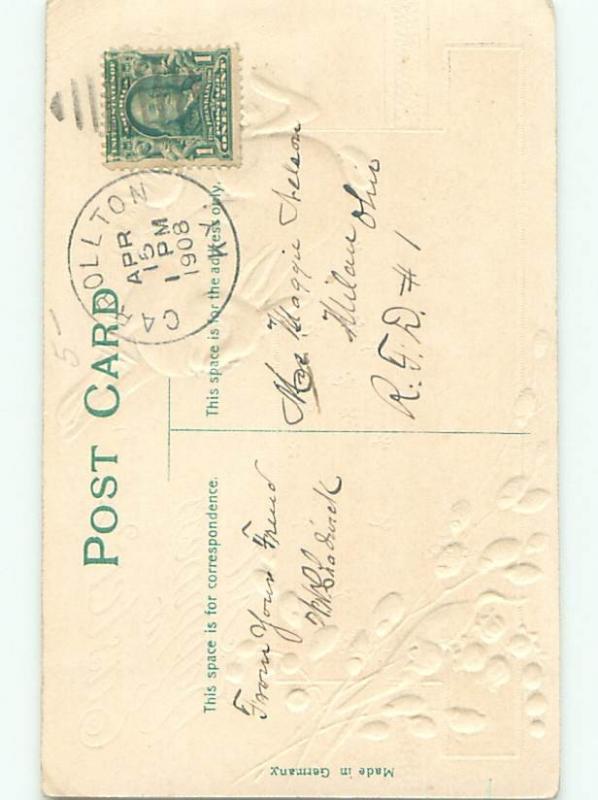 POST CARD
CARROLLTON
APR
15
1 PM
1908
KY.
1 1
This space is for correspondence.
This space is for the address only.
From Your Friend
Chadwick
Mrs Maggie Nelson
Milan Ohio
R.F.D. # 1
Made in Germany.